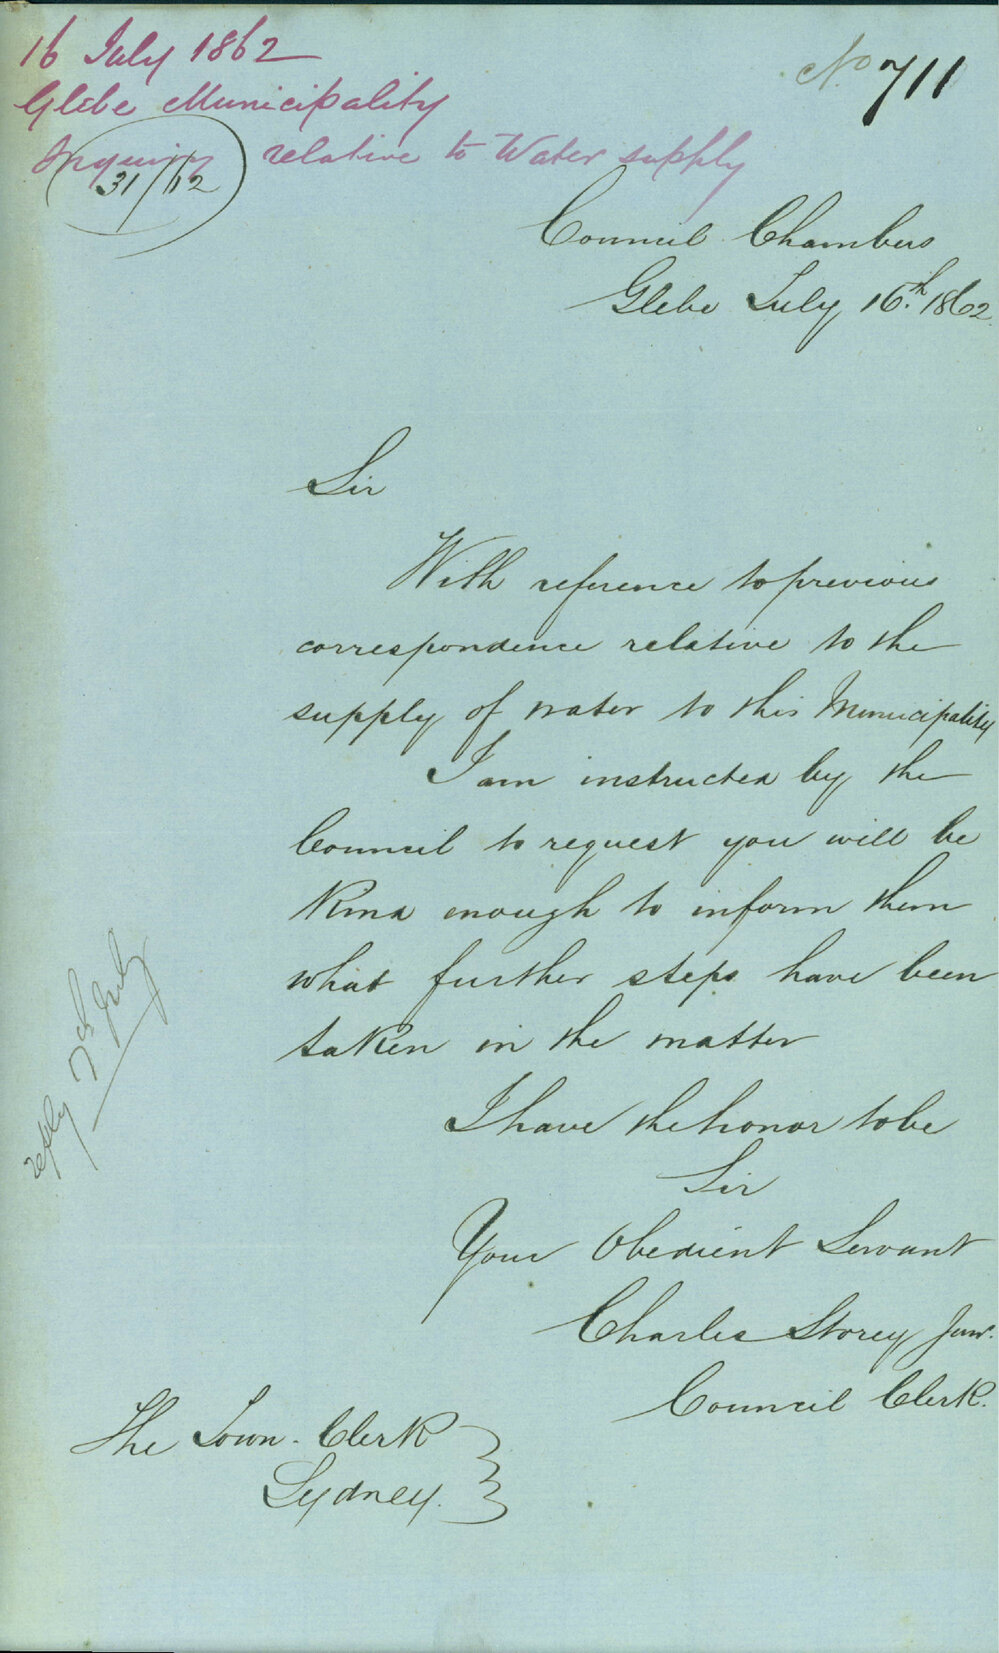 16 July 1862
Glebe Municipality
Inquiry relative to Water supply
No 711
31/12
Council Chambers
Glebe July 16th. 1862.
Sir
With reference to previous
correspondence relative to the
supply of water to this Municipality
I am instructed by the
Council to request you will be
Kind enough to inform them
what further steps have been
taken in the matter
I have the honor to be
Sir
Your Obedient Servant
Charles Storey Junr.
Council Clerk.
The Town Clerk
Sydney.
reply July